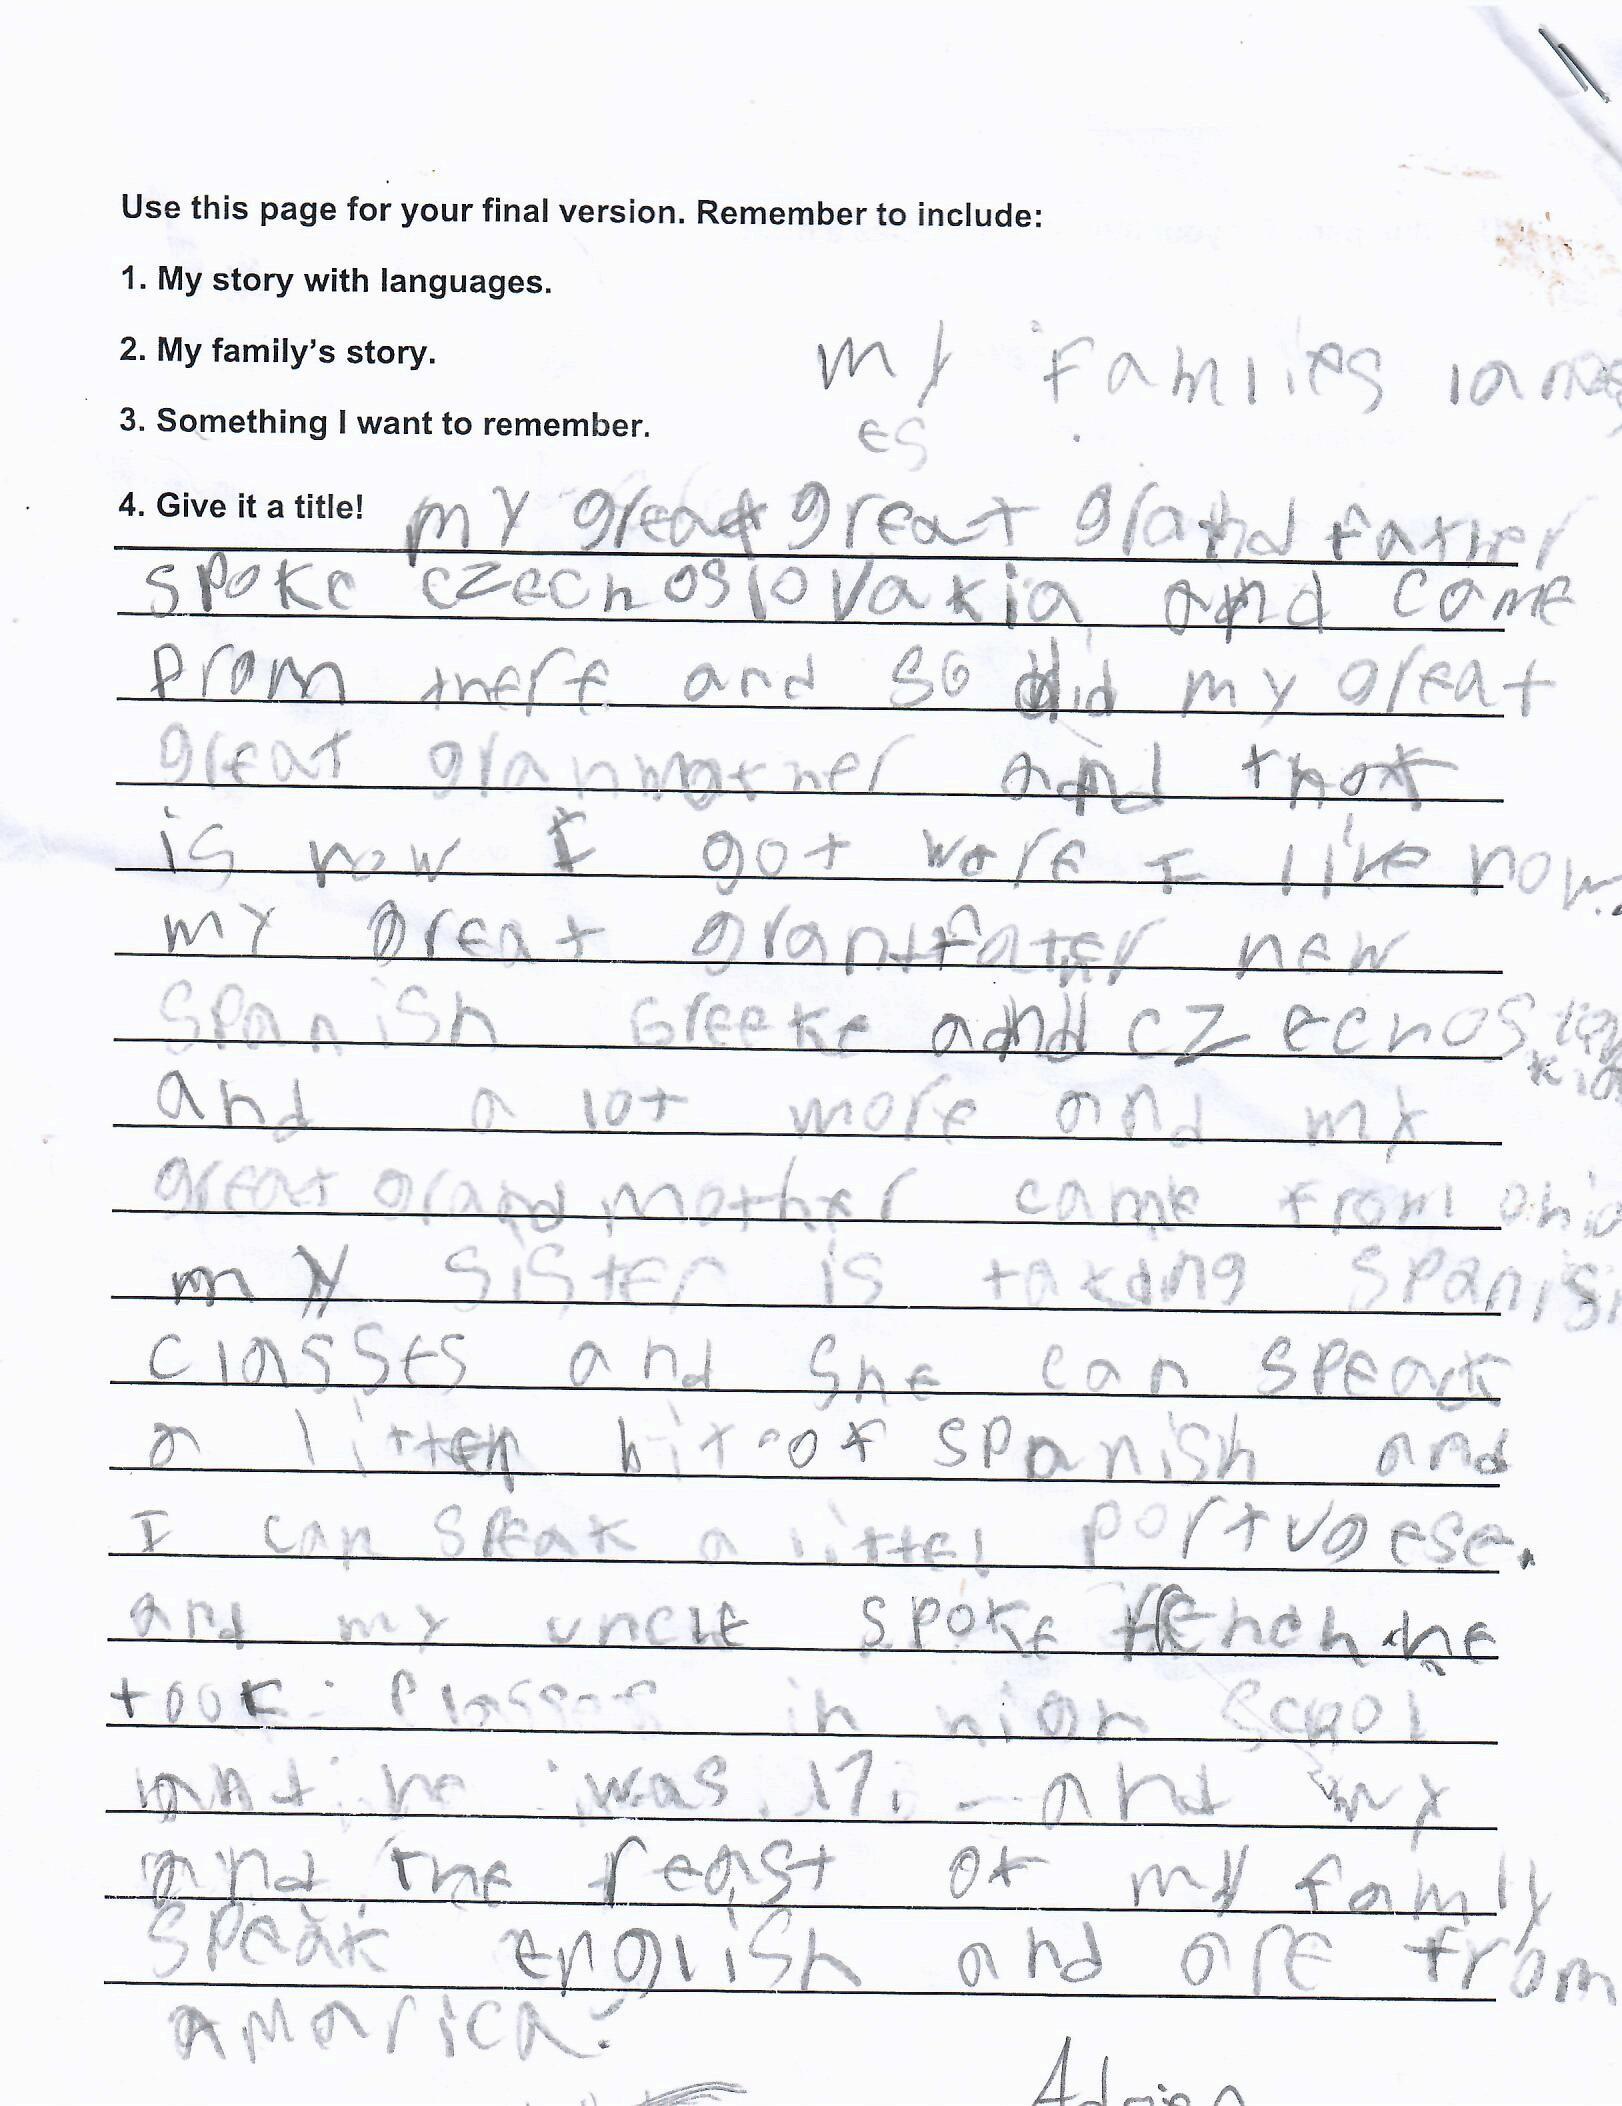 Use this page for your final version. Remember to include:
1. My story with languages.
2. My family's story.
3. Something I want to remember.
my families
es
4. Give it a title!
my great great grand father
spoke czechoslovakia and came
from there and so did my great
great granmother and that
is how I got were I live now.
my great grantfather new
spanish Greeke and czechoslovakia
and a lot more and my
great grandmother came from ohio
my sister is taking spanish
classes and she can speak
a littel bit of spanish and
I can speak a littel portugese.
and my uncle spoke french he
took classes in high scool
he was 17. and my
and the reast of my family
speak english and are from
amarica.
Adrian